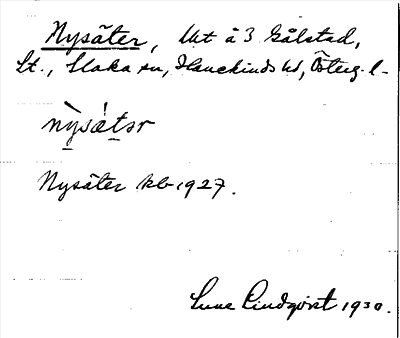 Nysäter, Utt å 3 Gålstad,
St., Slaka sn, Hanekinds hd, Österg. l-
nỳsǽtər
Nysäter kb 1927.
Sune Lindqvist 1930.